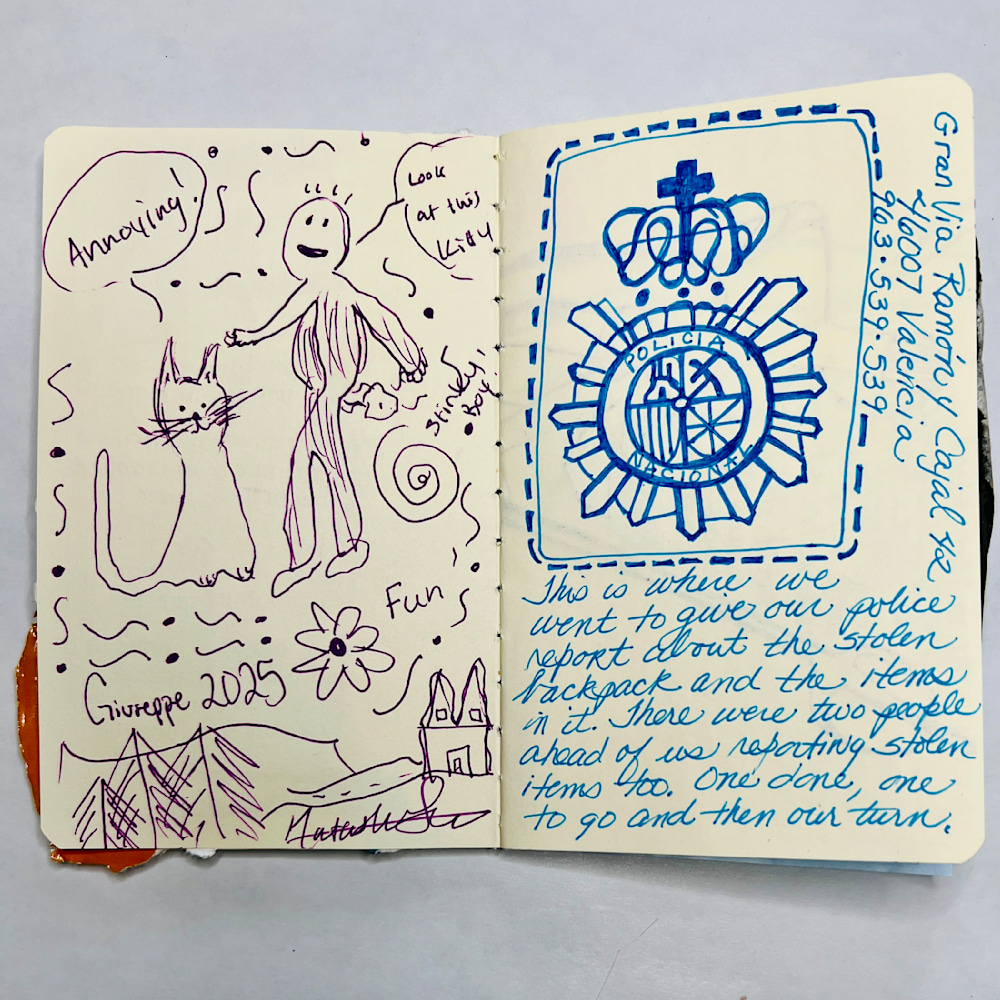 Annoying!
Look
at this
Kitty
Stinky
Boy!
Fun!
Giuseppe 2025
POLICIA
NACIONAL
Gran Via Ramón y Cajal 42
46007 Valencia
963·539·539
This is where we
went to give our police
report about the stolen
backpack and the items
in it. There were two people
ahead of us reporting stolen
items too. One done, one
to go and then our turn.